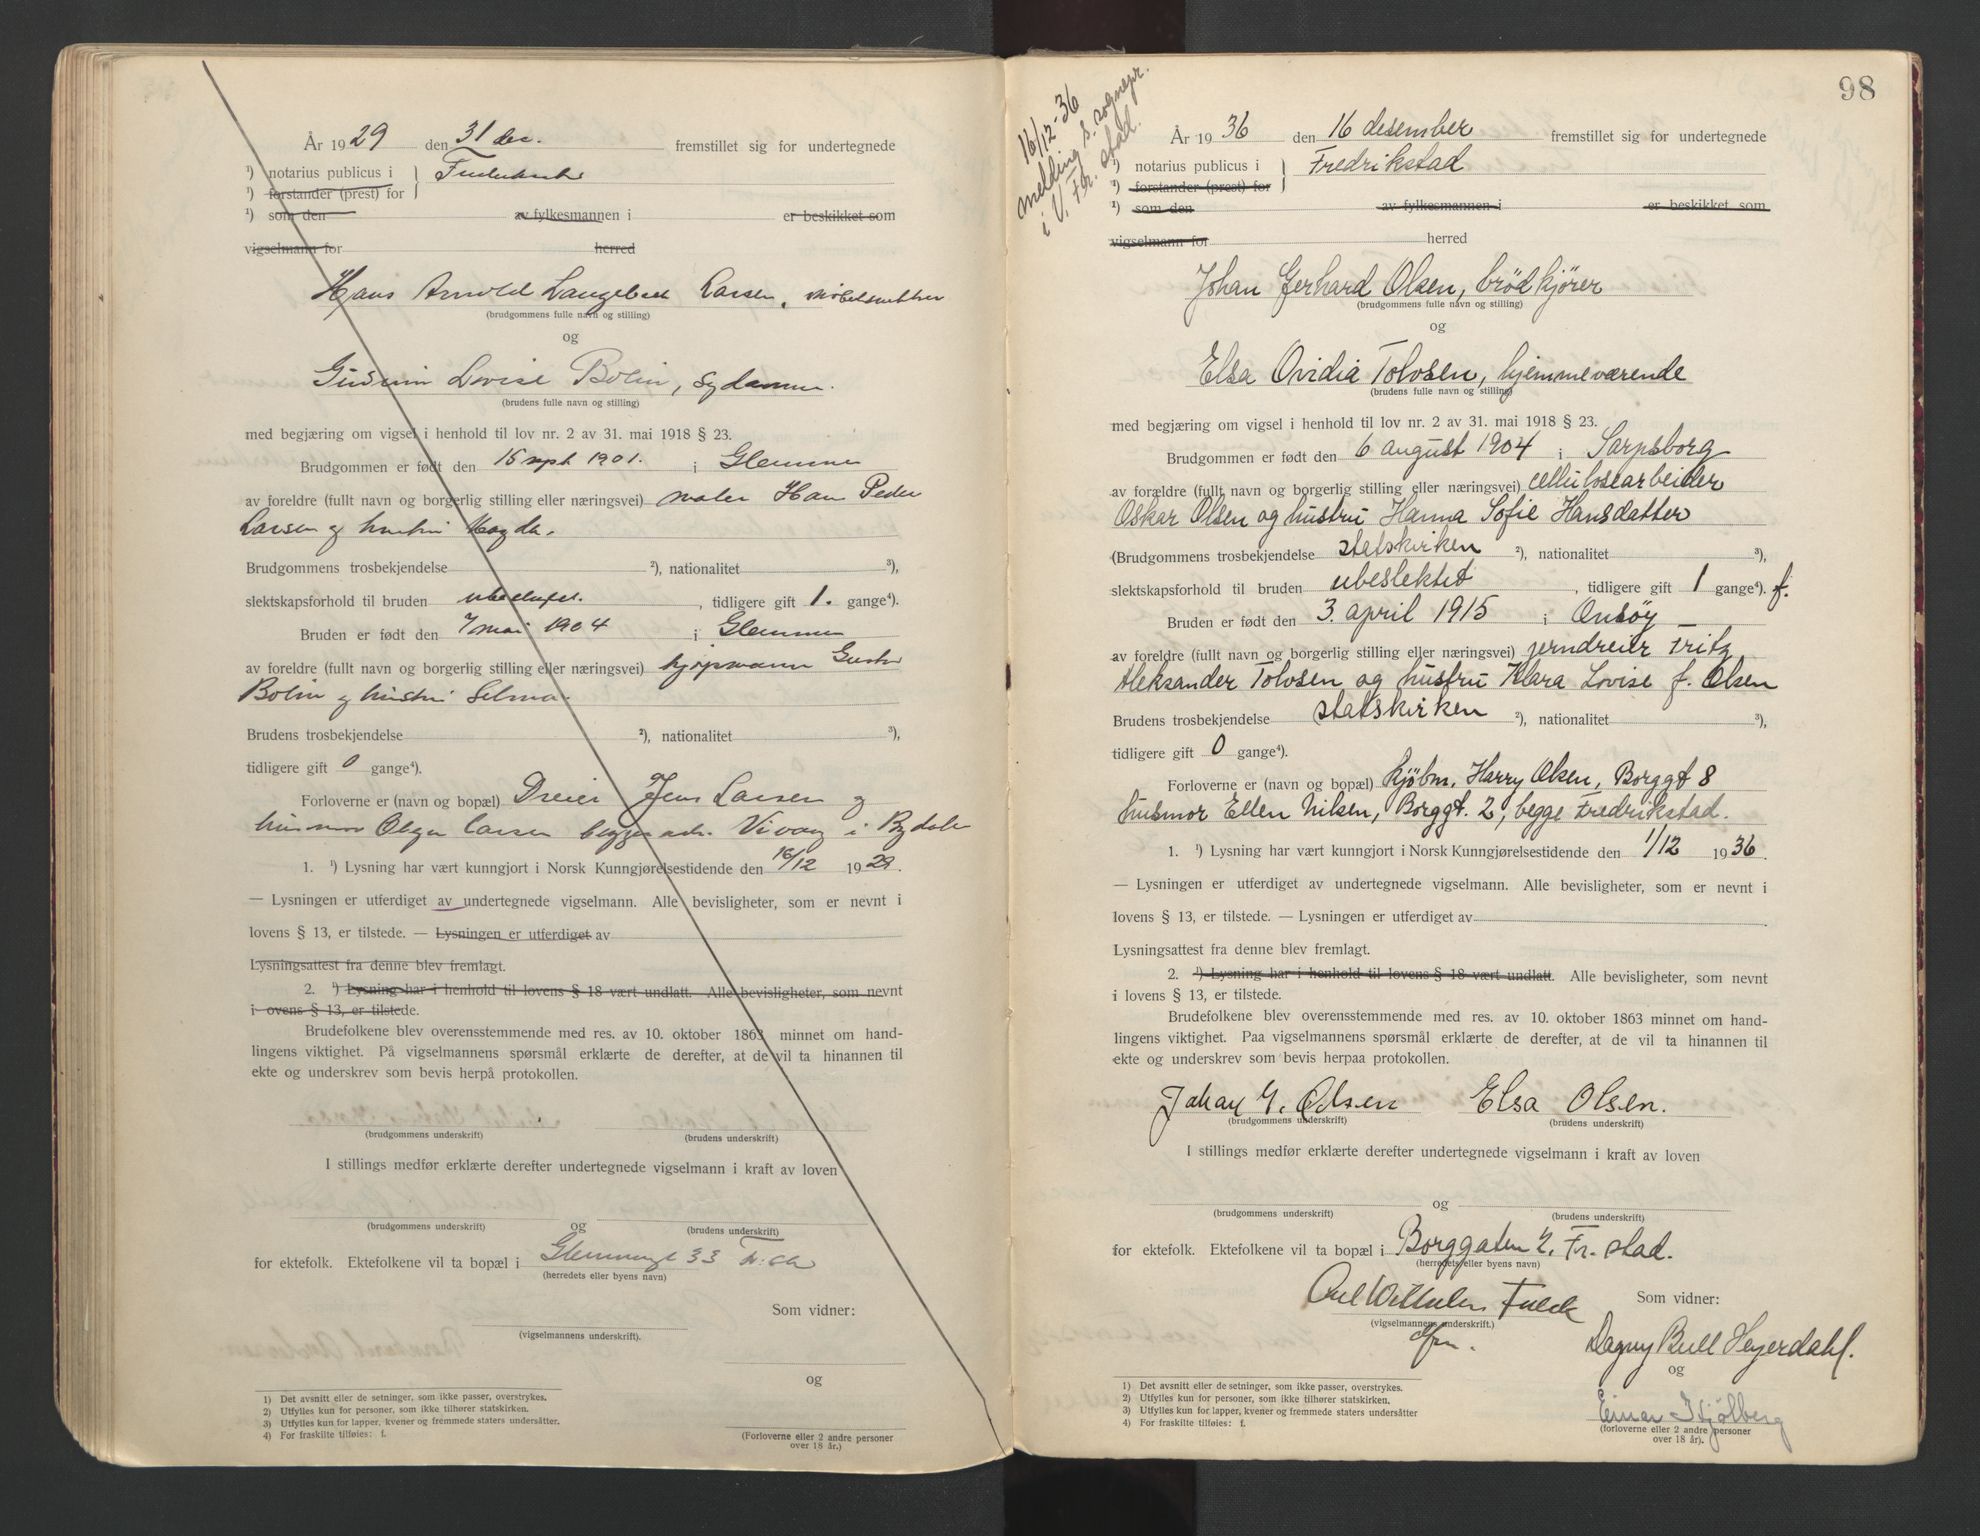 År 1929 den 31 dec. fremstillet sig for undertegnede
¹) notarius publicus i
¹) forstander (prest) for
¹) som den av fylkesmannen i er beskikket som
vigselmann for herred
Hans Arnold Larsen,
(brudgommens fulle navn og stilling)
og
Gudrun Lovise Bolin, sydamme.
(brudens fulle navn og stilling)
med begjæring om vigsel i henhold til lov nr. 2 av 31. mai 1918 § 23.
Brudgommen er født den 15 sept 1901. i Glemmen
av foreldre (fullt navn og borgerlig stilling eller næringsvei) maler Hans Peder
Larsen og hustru Magda.
Brudgommens trosbekjendelse ²), nationalitet ³),
slektskapsforhold til bruden ubeslektet. , tidligere gift 1. gange⁴).
Bruden er født den 7 mai 1904 i Glemmen
av foreldre (fullt navn og borgerlig stilling eller næringsvei) kjøpmann Gustav
Bolin og hustru Selma.
Brudens trosbekjendelse ²), nationalitet ³),
tidligere gift 0 gange⁴).
Forloverne er (navn og bopæl) Dreier Jens Larsen og
husmor Olga Larsen begges adr. i
1. ¹) Lysning har vært kunngjort i Norsk Kunngjørelsestidende den 16/12 1929.
— Lysningen er utferdiget av undertegnede vigselmann. Alle bevisligheter, som er nevnt i
lovens § 13, er tilstede. — Lysningen er utferdiget av
Lysningsattest fra denne blev fremlagt.
2. ¹) Lysning har i henhold til lovens § 18 vært undlatt. Alle bevisligheter, som nevnt
i ovens § 13, er tilstede.
Brudefolkene blev overensstemmende med res. av 10. oktober 1863 minnet om hand-
lingens viktighet. På vigselmannens spørsmål erklærte de derefter, at de vil ta hinannen til
ekte og underskrev som bevis herpå protokollen.
(brudgommens underskrift) (brudens underskrift)
I stillings medfør erklærte derefter undertegnede vigselmann i kraft av loven
og
(brudgommens underskrift) (brudens underskrift)
for ektefolk. Ektefolkene vil ta bopæl i Glemmengt 33
(herredets eller byens navn)
Som vidner:
(vigselmannens underskrift).
og
1) Det avsnitt eller de setninger, som ikke passer, overstrykes.
2) Utfylles kun for personer, som ikke tilhører statskirken.
3) Utfylles kun for lapper, kvener og fremmede staters undersåtter.
4) For fraskilte tilføies: f.
(Forloverne eller 2 andre personer
over 18 år).
98
16/12-36
melding s. sognepr.
i V. Fr.stad.
År 1936 den 16 desember fremstillet sig for undertegnede
¹) notarius publicus i Fredrikstad
¹) forstander (prest) for
¹) som den av fylkesmannen i er beskikket som
vigselmann for herred
Johan Gerhard Olsen, brödkjører
(brudgommens fulle navn og stilling)
og
Elsa Ovidia Tolvsen, hjemmeværende
(brudens fulle navn og stilling)
med begjæring om vigsel i henhold til lov nr. 2 av 31. mai 1918 § 23.
Brudgommen er født den 6 august 1904 i Sarpsborg
av forældre (fullt navn og borgerlig stilling eller næringsvei) cellulosearbeider
Oskar Olsen og hustru Hanna Sofie Hansdatter
(Brudgommens trosbekjendelse statskirken ²), nationalitet ³),
slektskapsforhold til bruden ubeslektet , tidligere gift 1 gange⁴). f.
Bruden er født den 3. april 1915 i Onsöy
av foreldre (fullt navn og borgerlig stilling eller næringsvei) jerndreier Fritz
Aleksander Tolvsen og hustru Klara Lovise f. Olsen
Brudens trosbekjendelse statskirken ²), nationalitet ³),
tidligere gift 0 gange⁴).
Forloverne er (navn og bopæl) kjøbm. Harry Olsen, Borggt 8
husmor Ellen Nilsen, Borggt. 2, begge Fredrikstad.
1. ¹) Lysning har vært kunngjort i Norsk Kunngjørelsestidende den 1/12 1936.
— Lysningen er utferdiget av undertegnede vigselmann. Alle bevisligheter, som er nevnt i
lovens § 13, er tilstede. — Lysningen er utferdiget av
Lysningsattest fra denne blev fremlagt.
2. ¹) Lysning har i henhold til lovens § 18 vært undlatt. Alle bevisligheter, som nevnt
i lovens § 13, er tilstede.
Brudefolkene blev overensstemmende med res. av 10. oktober 1863 minnet om hand-
lingens viktighet. Paa vigselmannens spørsmål erklærte de derefter, at de vil ta hinannen til
ekte og underskrev som bevis herpaa protokollen.
Johan G. Olsen Elsa Olsen.
(brudgommens underskrift) (brudens underskrift)
I stillings medfør erklærte derefter undertegnede vigselmann i kraft av loven
og
(brudgommens underskrift) (brudens underskrift)
for ektefolk. Ektefolkene vil ta bopæl i Borggaten 2, Fr.stad.
(herredets eller byens navn)
Carl Wilhelm Som vidner:
(vigselmannens underskrift.)
Dagny Bull Heyerdahl.
og
Einar Kjölberg
(forloverne eller 2 andre personer
over 18 år).
1) Det avsnitt eller de setninger, som ikke passer, overstrykes.
2) Utfylles kun for personer, som ikke tilhører statskirken.
3) Utfylles kun for lapper, kvener og fremmede staters undersåtter
4) For fraskilte tilføies: f.